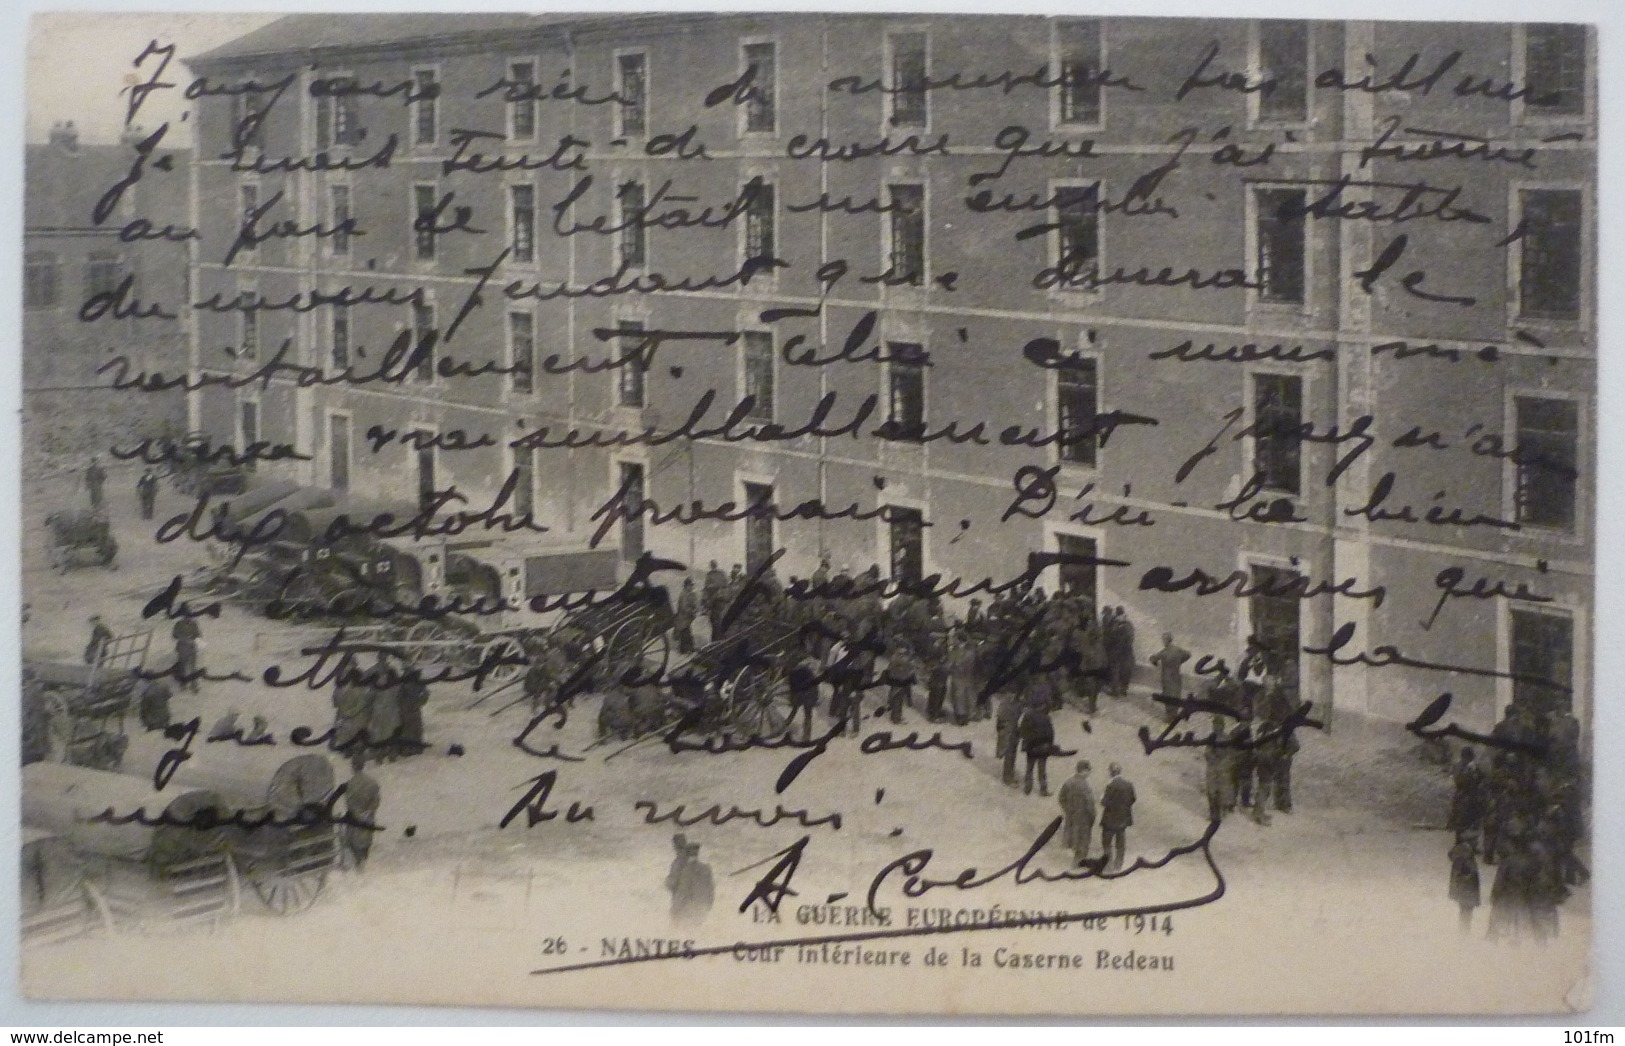 Toujours rien de nouveau par ailleurs
je serais tenté de croire que j'ai trouvé
au parc de bétail un emploi stable,
du moins pendant que durera le
ravitaillement. Celui ci nous mè-
nera vraisemblablement jusqu'au
dix octobre prochain. D'ici là bien
des évènements peuvent arriver qui
mettront peut être fin à la
guerre. Le bonjour à tout le
monde. Au revoir.
A. Cochard
LA GUERRE EUROPÉENNE de 1914
26 - NANTES - Cour intérieure de la Caserne Bedeau
101fm